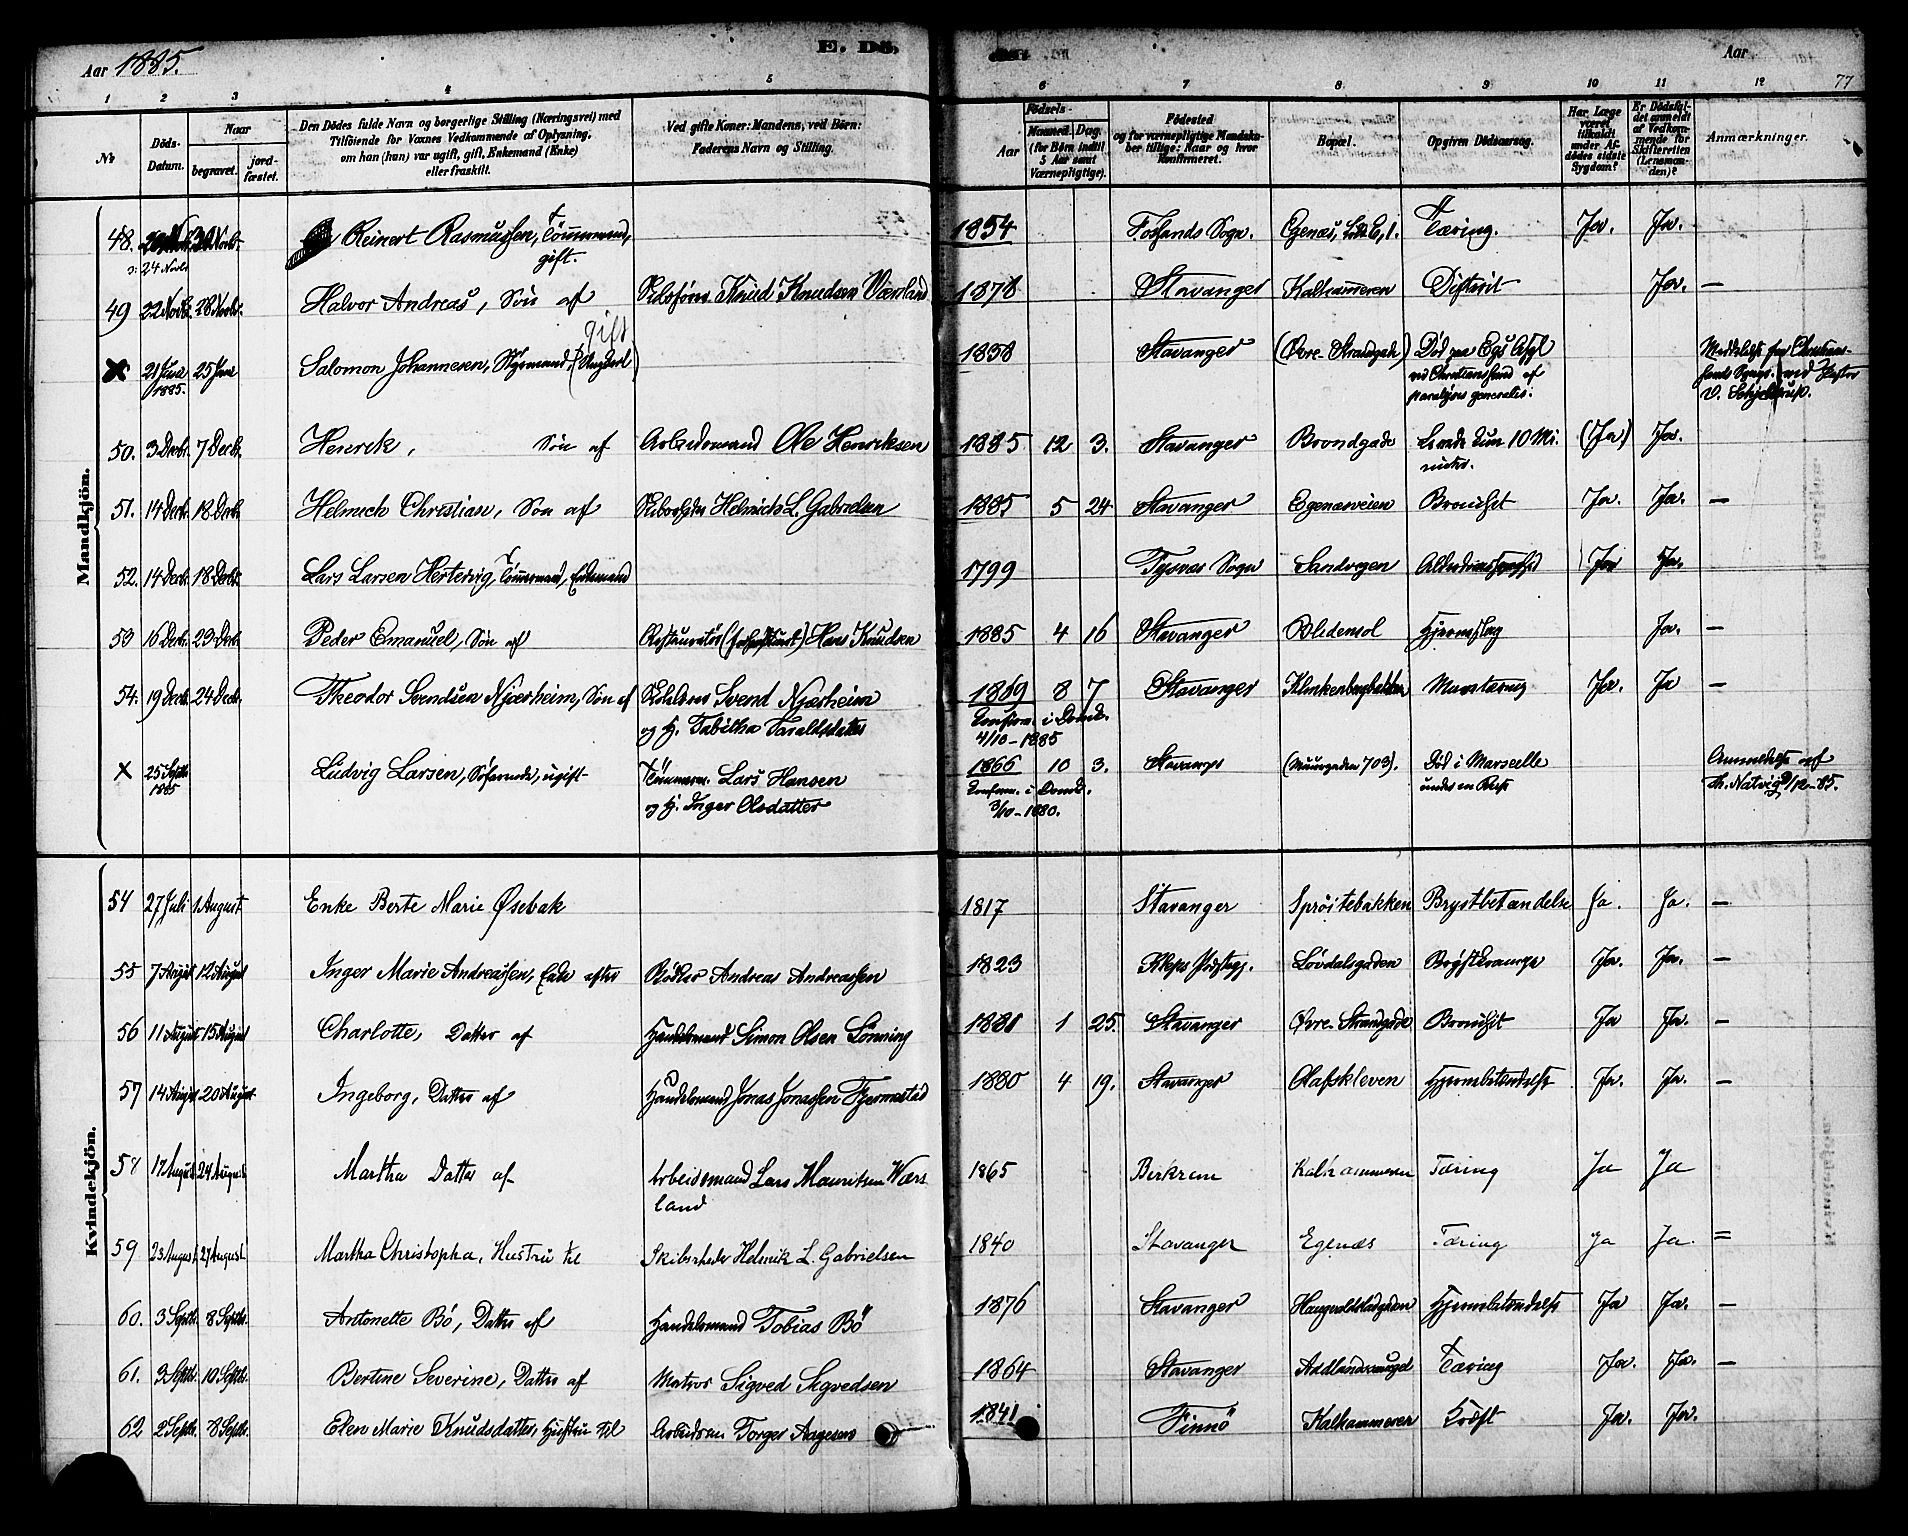 Aar 1885.
E. Dö
Aar
77
1 2 3 4 5 6 7 8 9 10 11 12
No
Döds-Datum.
Naar
begravet.
jord-fæstet.
Den Dödes fulde Navn og borgerlige Stilling (Næringsvei) med
Tilföiende for Voxnes Vedkommende af Oplysning,
om han (hun) var ugift, gift, Enkemand (Enke)
eller fraskilt.
Ved gifte Koner: Mandens, ved Börn:
Faderens Navn og Stilling.
Födsels-
Aar
Maaned. Dag.
(for Börn indtil
5 Aar samt
Værnepligtige).
Födested
og for værnepligtige Mandska-
ber tillige: Naar og hvor
Konfirmeret.
Bopæl.
Opgiven Dödsaarsag.
Har Læge
været
tilkaldt
under Af-
dödes sidste
Sygdom?
Er Dödsfal-
det anmeldt
af Vedkom-
mende for
Skifteretten
(Lensman-
den)?
Anmærkninger.
Mandkjön.
48. 30 Novbr. Reinert Rasmussen, Tömmermand, 1854 Fossands Sogn. Egenæs, Tæring. Ja. Ja.
ɔ: 24 Novbr. gift.
49 22 Novbr. 28 Novbr. Halvor Andreas, Sön af Knud Knudsen Værland 1878 Stavanger Kalhammeren Difterit Ja. —
gift
21 Juni 25 Juni Salomon Johannesen, Styrmand, (Ungkarl) 1858 Stavanger (Øvre Strandgade) Död paa Egs Asyl
1885. ved Christianssand af
paralysis generalis.
50. 3 Decbr. 7 Decbr. Henrik, Sön af Arbeidsmand Ole Henriksen 1885 12 3. Stavanger Brondgade Levede kun 10 Mi- (Ja) Ja.
nuter.
51. 14 Decbr. 18 Decbr. Helmich Christian, Sön af Helmich L. Gabrielsen 1885 5 24 Stavanger Egenæsveien Bronchit Ja. Ja. —
52. 14 Decbr. 18 Decbr. Lars Larsen Hertervig, Tömmermand, Enkemand 1799 Tysvær Sogn Sandvigen Ja Ja.
53 16 Decbr. 23 Decbr. Peder Emanuel, Sön af Restauratör Hans Knudsen 1885 4 16 Stavanger Blidensol Hjerneslag Ja. —
54. 19 Decbr. 24 Decbr. Theodor Svendsen Njærheim, Sön af Svend Njærheim 1869 8 7 Stavanger Klinkenbergbakken Ja. Ja —
og H. Tabitha Taraldsdatter Confirm. i Domk.
4/10-1885
x 25 Septbr. Ludvig Larsen, Söfarende, ugift Tömmerm. Lars Hansen 1866 10 3. Stavanger (Muurgaden 703). Död i Marseille Anmeldelse af
1885 og H. Inger Olsdatter Confirm. i Domk. under en Reise
3/10-1880.
Kvindekjön.
54 27 Juli 1 August Enke Berte Marie Øsebak 1817 Stavanger Spröitebakken Brystbetændelse Ja. Ja. —
55 7 August 12 August Inger Marie Andreassen, Enke efter Bödker Andreas Andreassen 1823 Klepp Prstgj. Lövdalsgaden Ja. Ja. —
56 11 August 15 August Charlotte, Datter af Handelsmand Simon Olsen Lönning 1881 1 25. Stavanger Øvre Strandgade Bronchit Ja Ja. —
57 14 August 20 August Ingeborg, Datter af Handelsmand Jonas Jonassen Fjermestad 1880 4 19. Stavanger Olafskleven Hjernebetændelse Ja. Ja. —
58 17 August 24 August Martha Datter af Arbeidsmand Lars Mauritsen Værs 1865 Birkrem Kalhammeren Tæring Ja Ja
land
59 23 August 27 August Martha Christopha, Hustru til Skibsrheder Helmik L. Gabrielsen 1840 Stavanger Egenæs Tæring Ja Ja =
60. 3 Septbr. 8 Septbr. Antonette Bö, Datter af Handelsmand Tobias Bö 1876 Stavanger Haugvaldstadgaden Hjernebetændelse Ja Ja. —
61. 3 Septbr. 10 Septbr. Bertine Severine, Datter af Matros Sigved Sigvedsen 1864 Stavanger Tæring Ja. Ja. —
62 2 Septbr. 8 Septbr. Elen Marie Knudsdatter, Hustru til Arbeidsm Torger Aagesens 1841 Finnö Kalhammeren Kræft Ja. Ja.